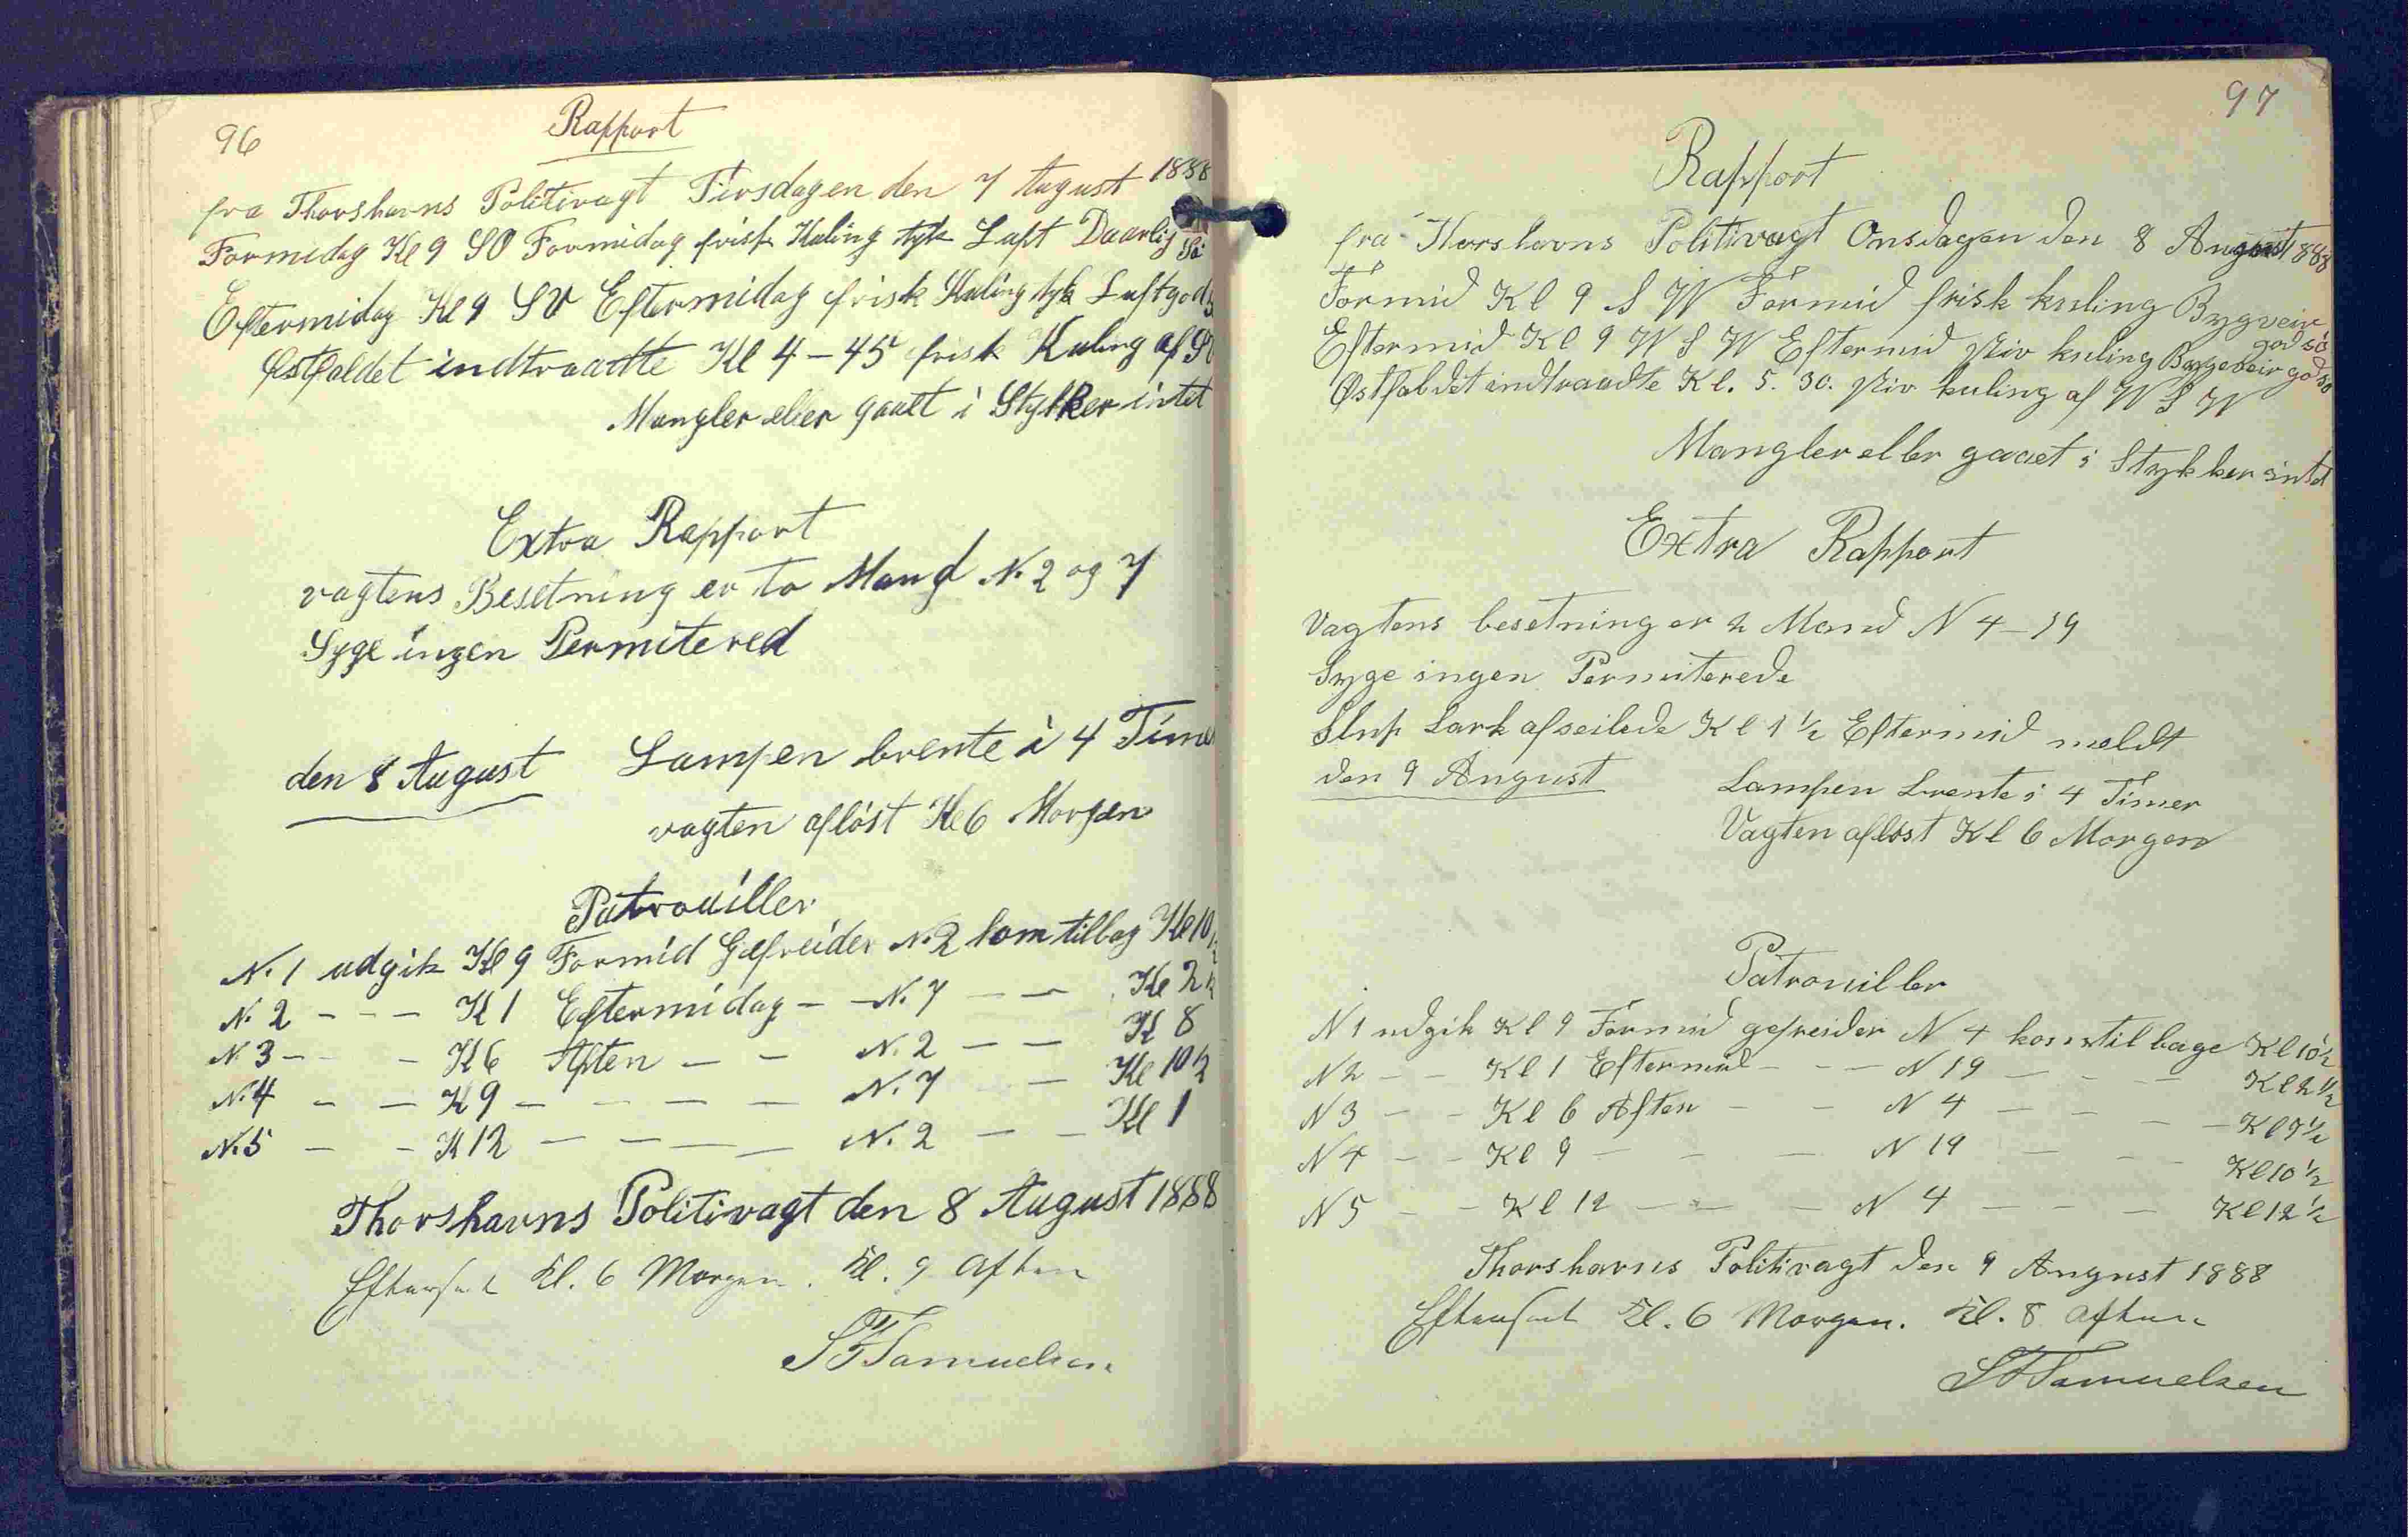 96
Rapport
fra Thorshavns Politivagt Tirsdagen den 7 August 1888
Formidag Kl 9 SO Formidag frisk Kuling tyk Luft Daarlig Sö
Eftermidag Kl 9 SV Eftermidag frisk Kuling tyk Luft god
Østfaldet indtraadte Kl 4-45 frisk Kuling af
Mangler eller gaaet i Stykker intet
Extra Rapport
vagtens Besetning er to Mand N. 2 og 7
Syge ingen Permitered
den 8 August Lampen brente i 4 Timer
vagten aflöst Kl 6 Morgen
Patrouiller
N. 1 udgik Kl 9 Formid Gefreider N. 2 kom tilbag Kl 10 1/2
N. 2 - - - Kl 1 Eftermidag - - N. 7 - - Kl 2 1/2
N. 3 - - - Kl 6 Aften - - N. 2 - - Kl 8
N. 4 - - Kl 9 - - - - - N. 7 - Kl 10 1/2
N. 5 - - Kl 12 - - - - N. 2 - - Kl 1
Thorshavns Politivagt den 8 August 1888
Efterseet Kl. 6 Morgen. Kl. 9 Aften
SFSamuelsen
97
Rapport
fra Thorshavns Politivagt Onsdagen den 8 August 1888
Formid Kl 9 S W Formid frisk kuling Bygveir god sö
Eftermid Kl 9 W S W Eftermid stiv kuling Bygeveir god sö
Østfaldet indtraadte Kl. 5. 30. stiv kuling af W S W
Mangler eller gaaet i Stykker intet
Extra Rapport
Vagtens besetning er 2 Mand N 4-19
Syge ingen Permiterede
Slup Lark afseilede Kl 1 1/2 Eftermid meldt
den 9 August Lampen brente i 4 Timer
Vagten aflöst Kl 6 Morgen
Patrouiller
N 1 udgik Kl 9 Formid gefreider N 4 kom tilbage Kl 10 1/2
N 2 - - Kl 1 Eftermid - - - N 19 - - - Kl 2 1/2
N 3 - - Kl 6 Aften - - N 4 - - - - Kl 7 1/2
N 4 - - Kl 9 - - - N 19 - - - Kl 10 1/2
N 5 - - Kl 12 - - - N 4 - - - Kl 12 1/2
Thorshavns Politivagt den 9 August 1888
Efterseet Kl. 6 Morgen. Kl. 8 Aften
SFSamuelsen